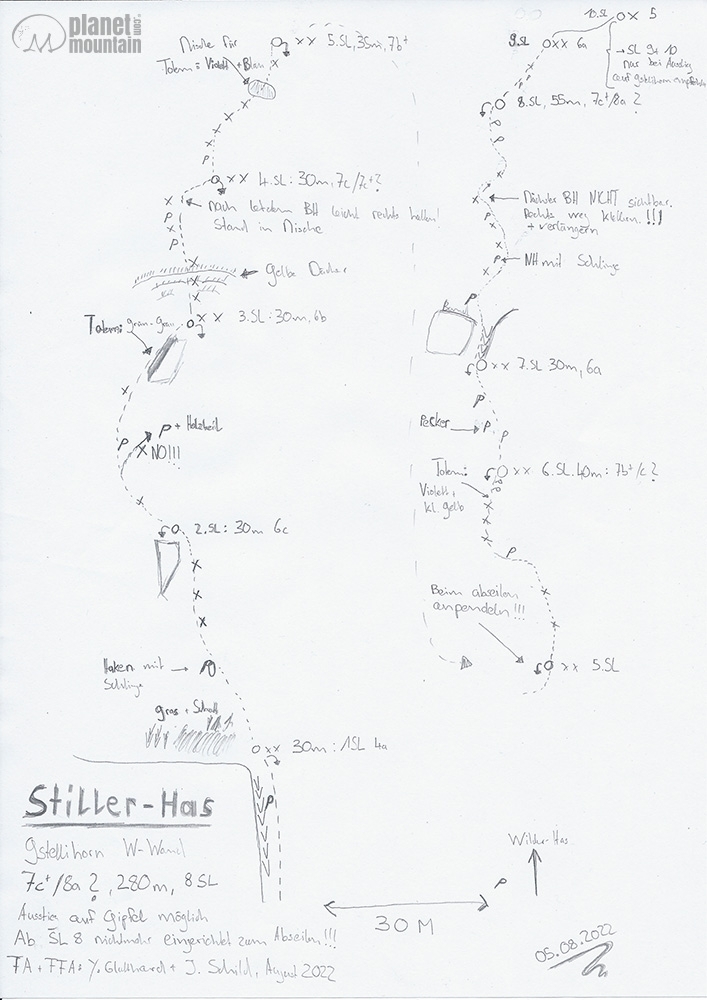 planet
mountain
.com
Nische für
Totem: Violett + Blau
5.SL, 35m, 7b+
4.SL: 30m, 7c/7c+?
nach letztem BH leicht rechts halten!
Stand in Nische
gelbe Dächer
3.SL: 30m, 6b
Totem: grün-grau
P + Holzkeil
NO!!!
2.SL: 30m 6c
Haken mit
Schlinge
gras + Schutt
30m: 1SL 4a
10.SL
5
9.SL
6a
→ SL 9+10
nur bei Ausstieg
auf gstellihorn empfohlen
8.SL, 55m, 7c+/8a ?
Nächster BH NICHT sichtbar.
Rechts weg klettern!!!
+ verlängern
NH mit Schlinge
7.SL 30m, 6a
Pecker
6.SL.40m: 7b+/c?
Totem:
Violett +
kl. gelb
Beim abseilen
anpendeln!!!
5.SL
Stiller-Has
Gstellihorn W-Wand
7c+/8a ?, 280m, 8SL
Ausstieg auf Gipfel möglich
Ab SL 8 nichtmehr eingerichtet zum Abseilen!!!
FA + FFA: Y. Glatthard + J. Schild, August 2022
Wilder-Has
P
30 M
05.08.2022